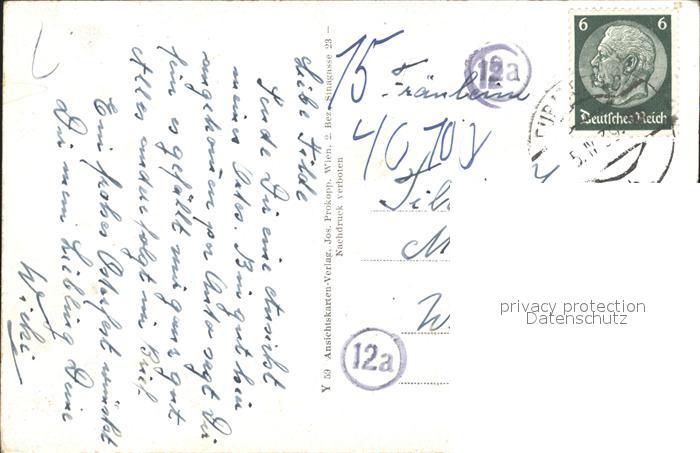 Liebe Tilde
Sende Dir eine Ansicht
meines Ortes. Bin gut hier
angekommen per Auto sagt Dir
hier es gefällt mir ganz gut
Alles andere folgt im Brief.
Ein frohes Osterfest wünscht
Dir mein Liebling Deine
Wicki
Y 59 Ansichtskarten-Verlag, Jos. Prokopp, Wien, 2. Bez., Sinagasse 23 –
Nachdruck verboten
15
12a
Fräulein
40
12a
6 6
Deutsches Reich
5.IV.39
privacy protection
Datenschutz